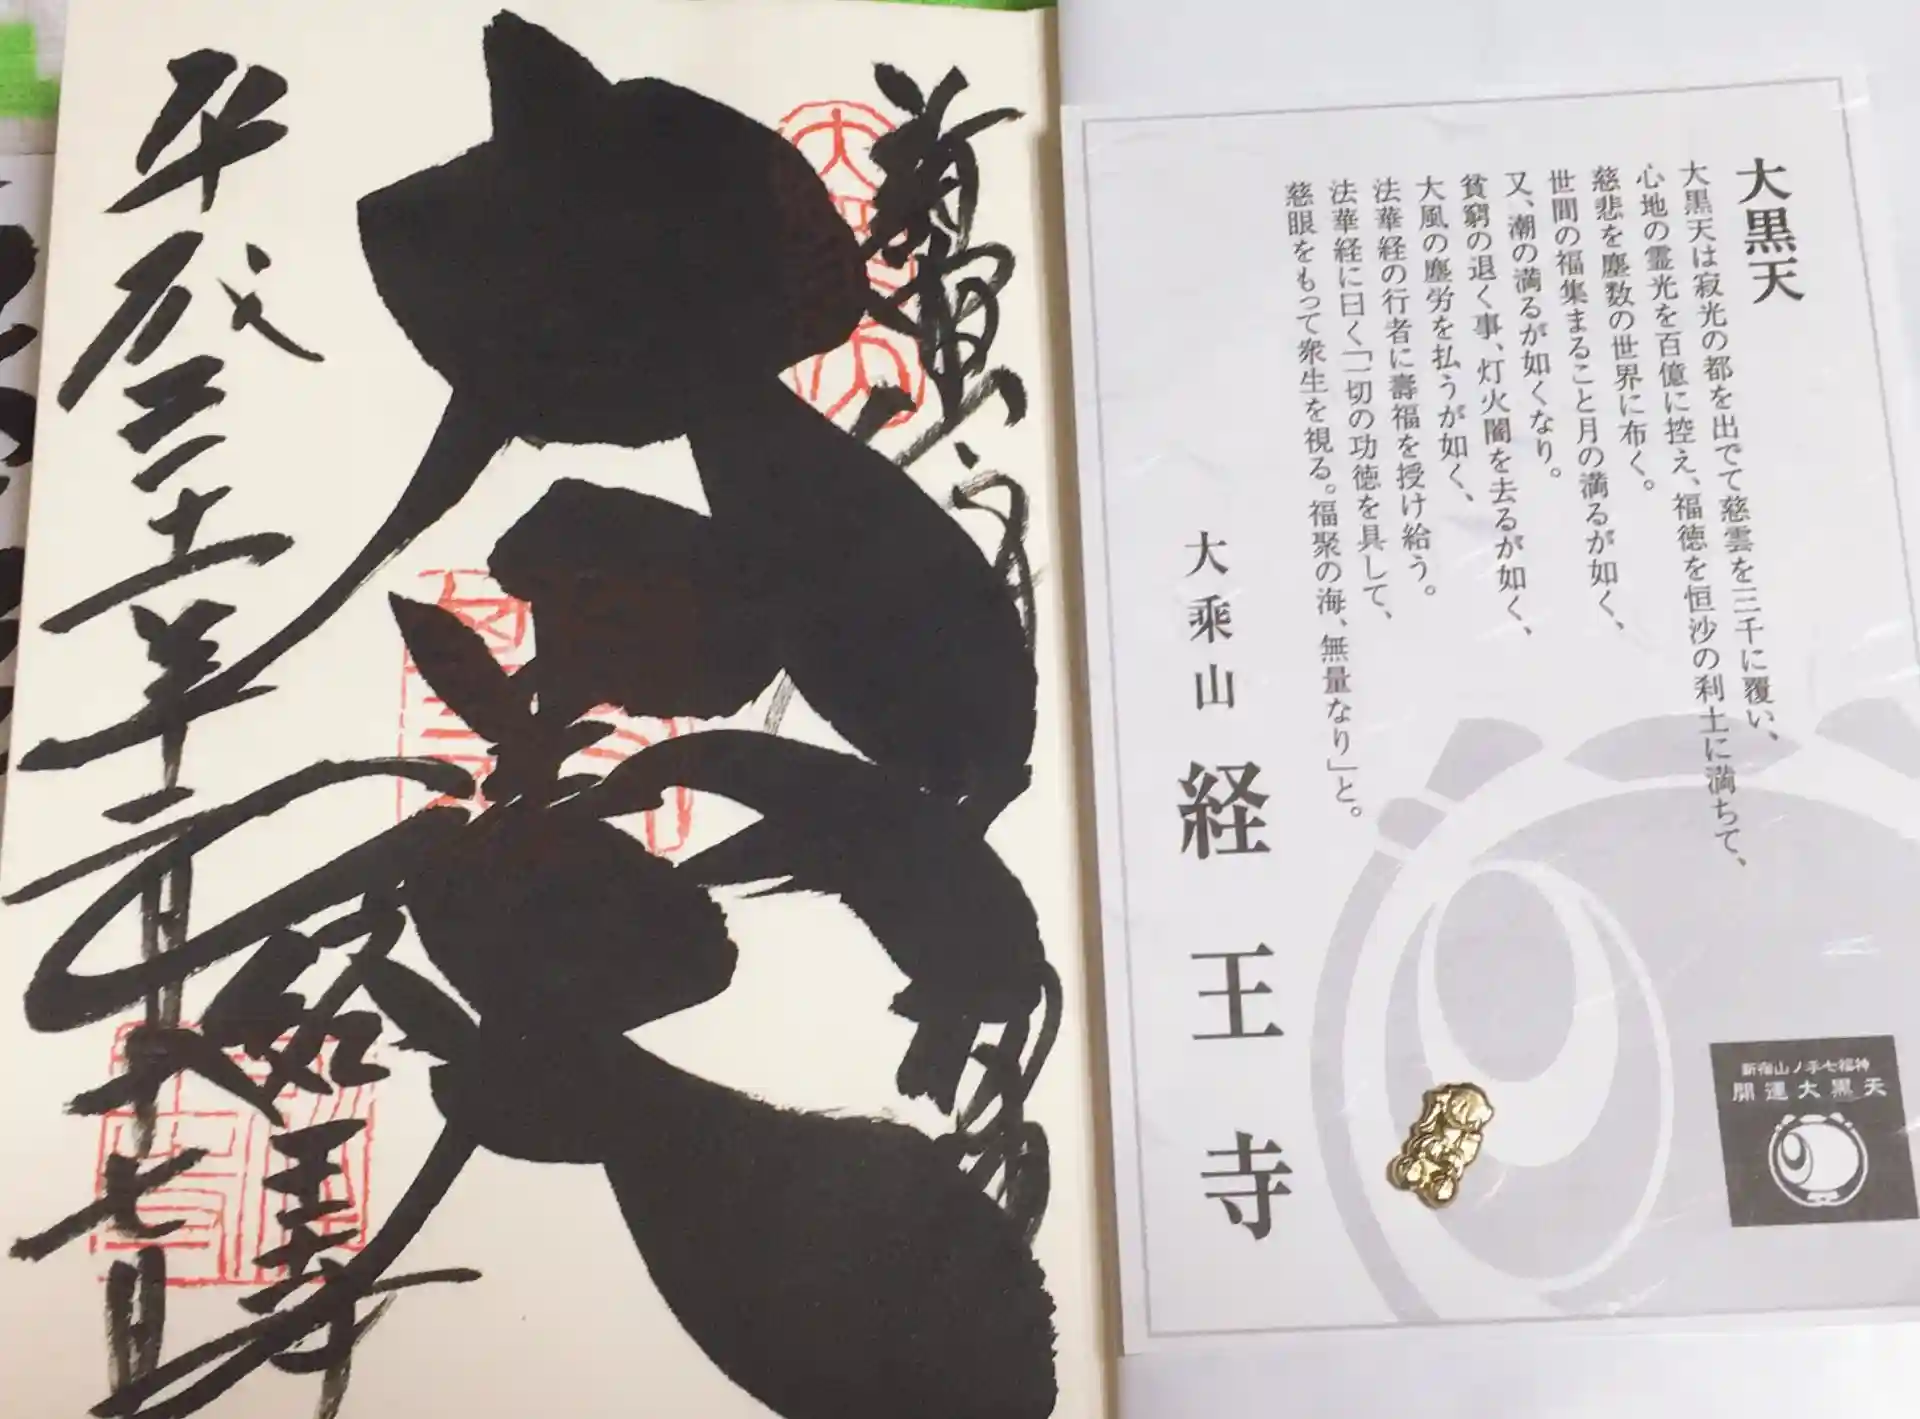 大黒天
大黒天は寂光の都を出でて慈雲を三千に覆い、
心地の霊光を百億に控え、福徳を恒沙の刹土に満ちて、
慈悲を塵数の世界に布く。
世間の福集まること月の満るが如く、
又、潮の満るが如くなり。
貧窮の退く事、灯火闇を去るが如く、
大風の塵労を払うが如く、
法華経の行者に壽福を授け給う。
法華経に曰く「一切の功徳を具して、
慈眼をもって衆生を視る。福聚の海、無量なり」と。
大乗山 経王寺
新宿山ノ手七福神
開運大黒天
平成三十年
十七日
経王寺